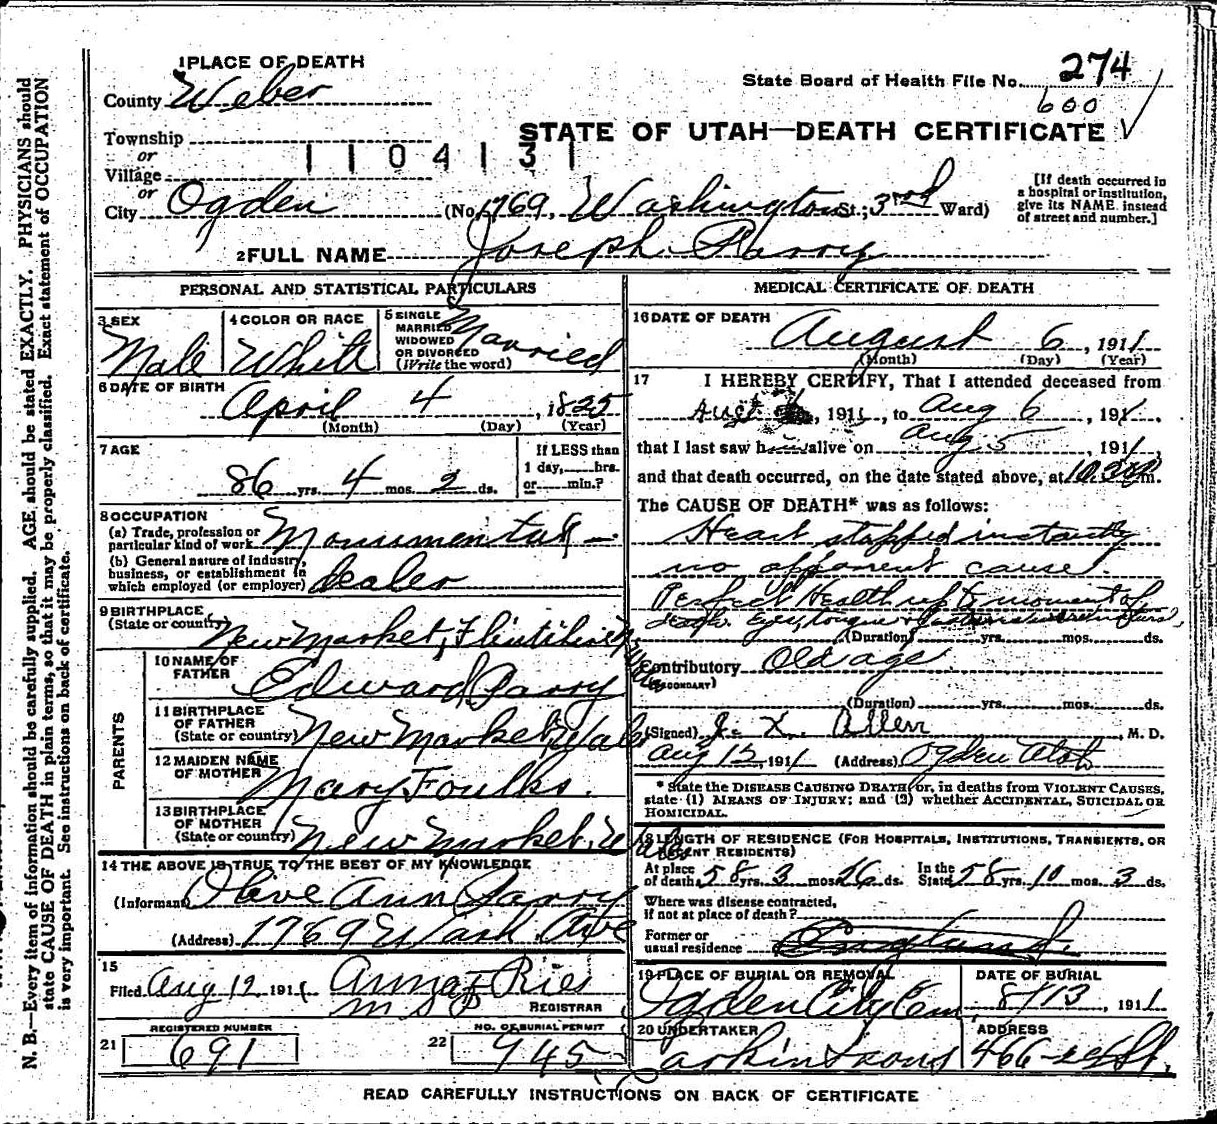 1 PLACE OF DEATH
County Weber
State Board of Health File No. 274
600
Township
or
Village
1104131
STATE OF UTAH—DEATH CERTIFICATE
or
City Ogden (No. 1769, Washington St.; 3rd Ward)
[If death occurred in
a hospital or institution,
give its NAME instead
of street and number.]
2 FULL NAME Joseph Parry
PERSONAL AND STATISTICAL PARTICULARS
3 SEX
Male
4 COLOR OR RACE
White
5 SINGLE
MARRIED
WIDOWED
OR DIVORCED
(Write the word)
Married
6 DATE OF BIRTH
April 4, 1825
(Month) (Day) (Year)
7 AGE
86 yrs. 4 mos. 2 ds.
If LESS than
1 day,......hrs.
or......min.?
8 OCCUPATION
(a) Trade, profession or
particular kind of work Monumental
(b) General nature of industry,
business, or establishment in
which employed (or employer) dealer
9 BIRTHPLACE
(State or country) New Market, Flintshire
PARENTS
10 NAME OF
FATHER Edward Parry
11 BIRTHPLACE
OF FATHER
(State or country) New Market, Wales
12 MAIDEN NAME
OF MOTHER Mary Foulks.
13 BIRTHPLACE
OF MOTHER
(State or country) New Market, Wales
14 THE ABOVE IS TRUE TO THE BEST OF MY KNOWLEDGE
(Informant) Olive Ann Parry
(Address) 1769 Wash. Ave
15
Filed Aug 12 1911 Anna F Ries
REGISTRAR
21 REGISTERED NUMBER
691
22 NO. OF BURIAL PERMIT
745
MEDICAL CERTIFICATE OF DEATH
16 DATE OF DEATH
August 6, 1911
(Month) (Day) (Year)
17 I HEREBY CERTIFY, That I attended deceased from
Aug, 1911, to Aug 6, 191
that I last saw h alive on Aug 5, 1911,
and that death occurred, on the date stated above, at 10.30 m.
The CAUSE OF DEATH* was as follows:
Heart stopped instantly
no apparent cause.
Perfect Health up to moment of
death.
(Duration) yrs. mos. ds.
Contributory Old age
(SECONDARY)
(Duration) yrs. mos. ds.
(Signed) Allen, M. D.
Aug 12, 1911 (Address) Ogden Utah
* State the DISEASE CAUSING DEATH, or, in deaths from VIOLENT CAUSES,
state (1) MEANS OF INJURY; and (2) whether ACCIDENTAL, SUICIDAL OR
HOMICIDAL.
18 LENGTH OF RESIDENCE (FOR HOSPITALS, INSTITUTIONS, TRANSIENTS, OR
RECENT RESIDENTS)
At place
of death, 58 yrs. 3 mos. 26 ds. In the
State 58 yrs. 10 mos. 3 ds.
Where was disease contracted,
if not at place of death?
Former or
usual residence England.
19 PLACE OF BURIAL OR REMOVAL
Ogden City Cem.
DATE OF BURIAL
8/13, 1911
20 UNDERTAKER
Larkin & Sons
ADDRESS
466-24 St.
READ CAREFULLY INSTRUCTIONS ON BACK OF CERTIFICATE
N. B.—Every item of information should be carefully supplied. AGE should be stated EXACTLY. PHYSICIANS should
state CAUSE OF DEATH in plain terms, so that it may be properly classified. Exact statement of OCCUPATION
is very important. See instructions on back of certificate.